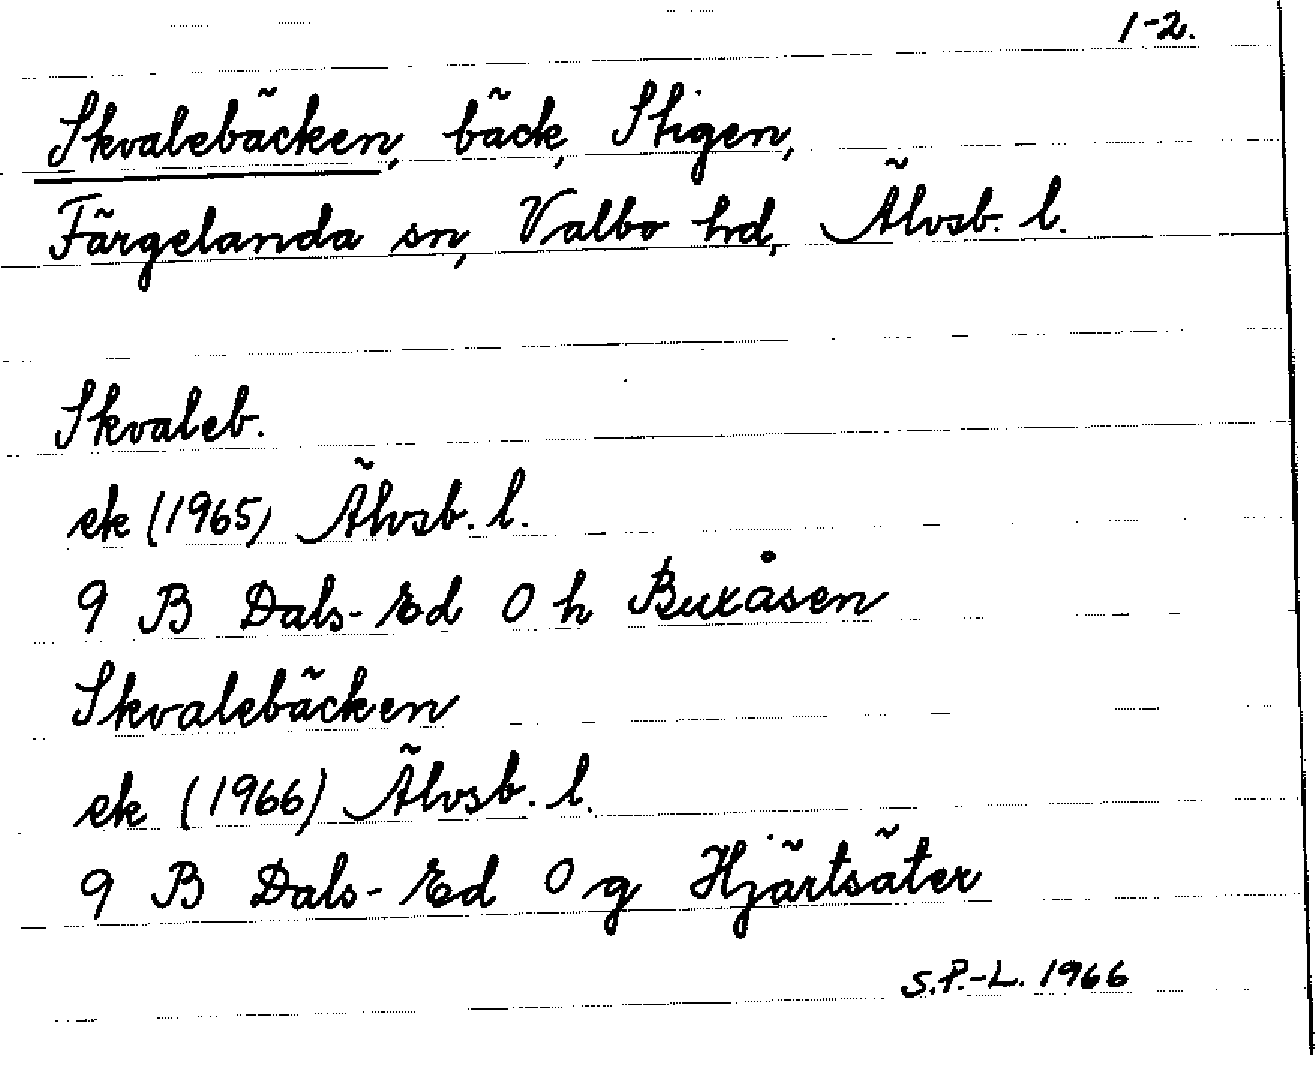 1-2.
Skvalebäcken, bäck, Stigen,
Färgelanda sn, Valbo hd, Älvsb. l.
Skvaleb.
ek (1965) Älvsb. l.
9 B Dals-Ed 0 h Buxåsen
Skvalebäcken
ek (1966) Älvsb. l.
9 B Dals-Ed 0 g Hjärtsäter
S.P.-L. 1966